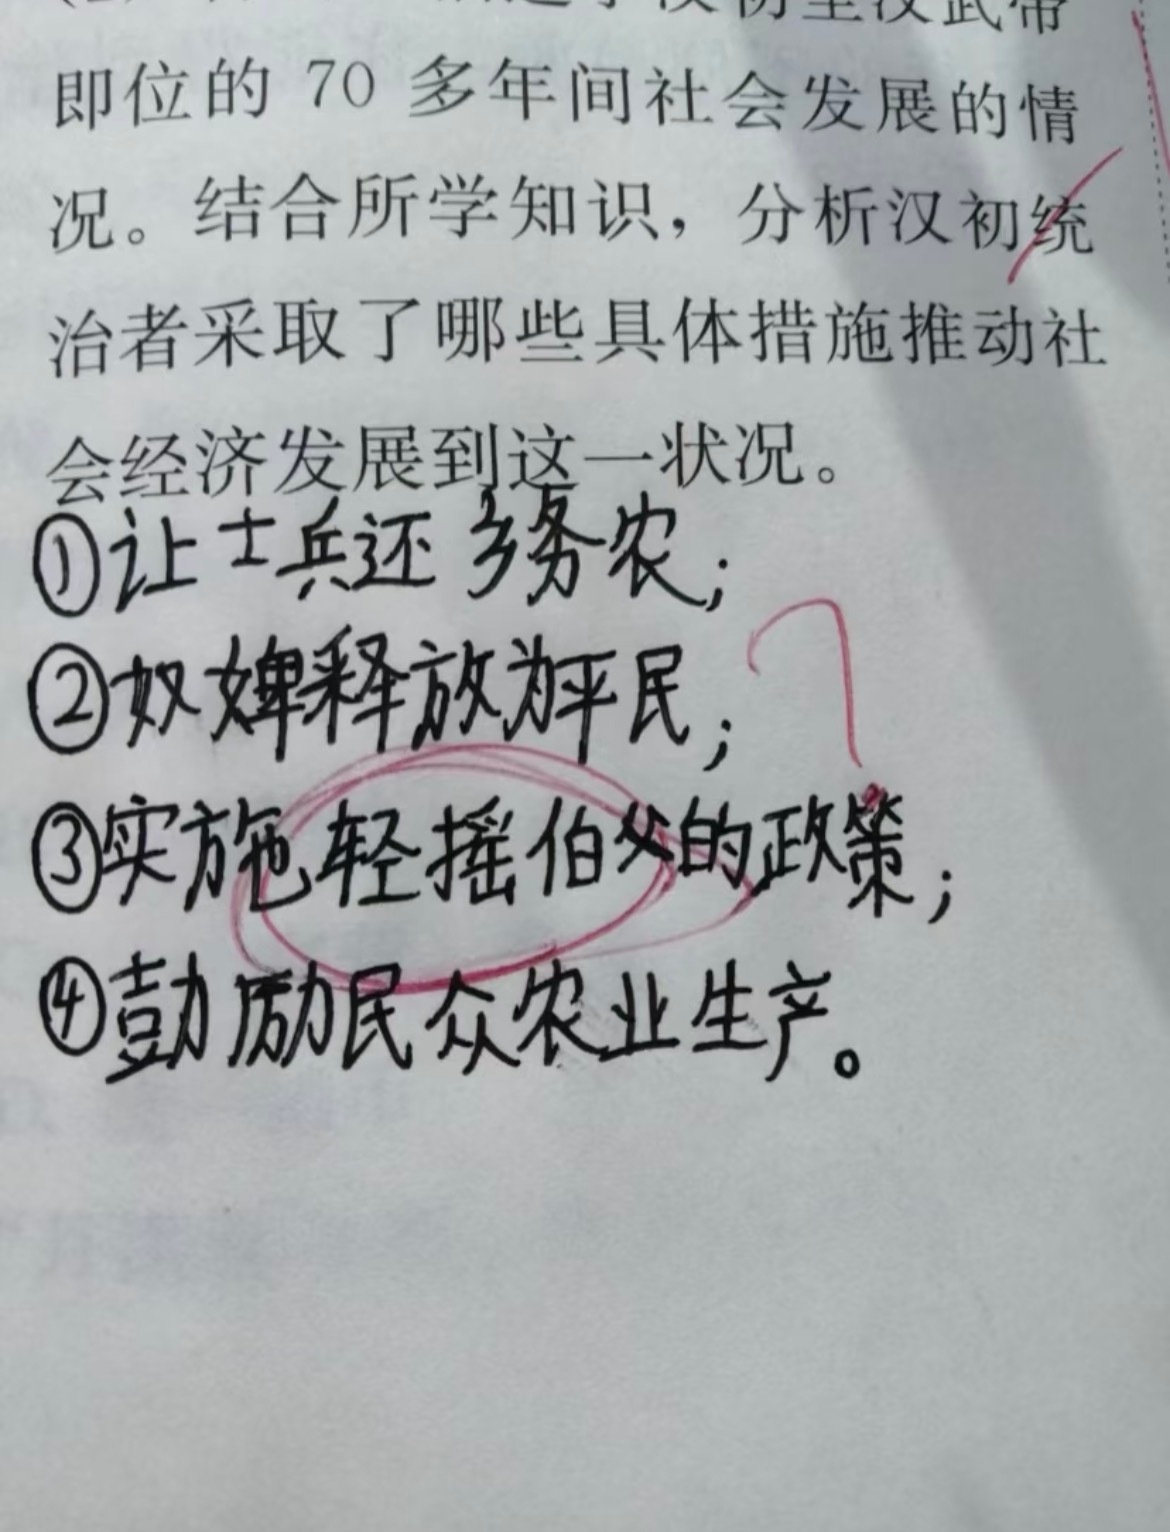 初至汉武帝
即位的 70 多年间社会发展的情
况。结合所学知识，分析汉初统
治者采取了哪些具体措施推动社
会经济发展到这一状况。
①让士兵还乡务农；
②奴婢释放为平民；
③实施轻摇伯父的政策；
④鼓励民众农业生产。